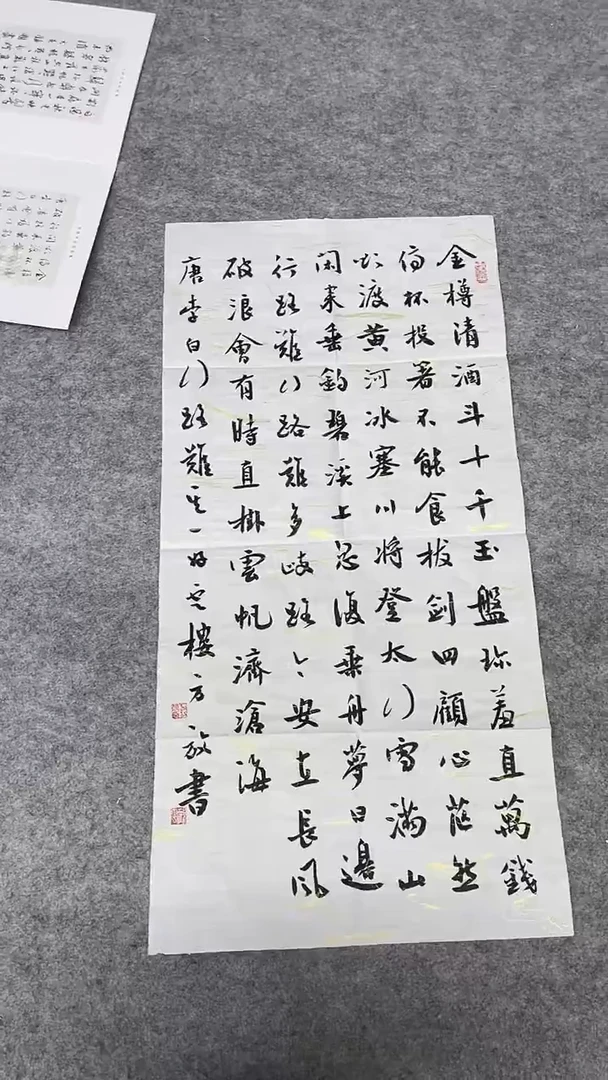 金樽清酒斗十千玉盤珍羞直萬錢
停杯投箸不能食拔劍四顧心茫然
欲渡黄河冰塞川將登太行雪滿山
閑來垂釣碧溪上忽復乘舟夢日邊
行路難行路難多歧路今安在長風
破浪會有時直掛雲帆濟滄海
唐李白行路難其一好樓方書